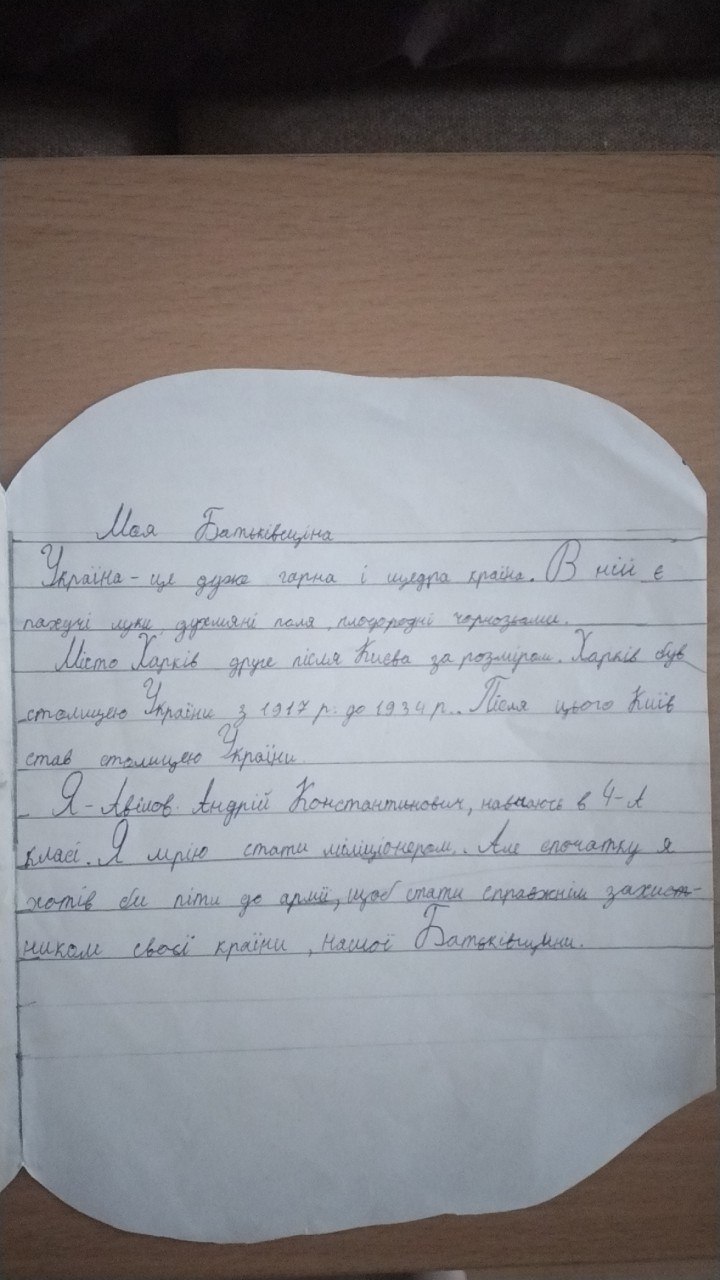 Моя Батьківщина
Україна - це дуже гарна і щедра країна. В ній є
пахучі луки, духмяні поля, плодородні чорноземи.
Місто Харків друге після Києва за розміром. Харків був
столицею України з 1917 р. до 1934 р.. Після цього Київ
став столицею України.
Я - Авілов Андрій Константинович, навчаюсь в 4-А
класі. Я мрію стати міліціонером.. Але спочатку я
хотів би піти до армії, щоб стати справжнім захист-
ником своєї країни, нашої Батьківщини.